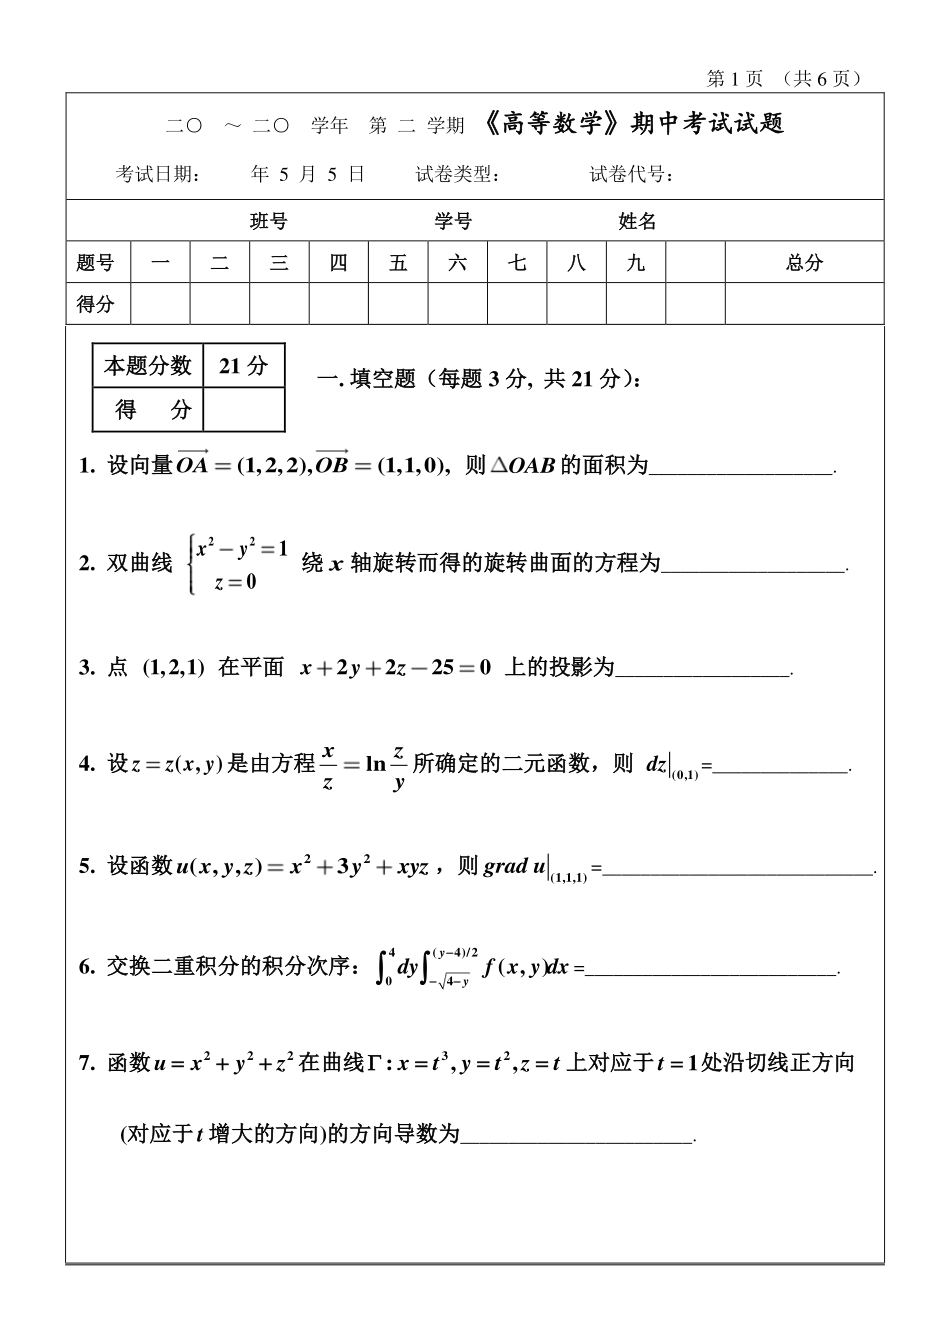 第 1 页 （共 6 页）
二〇 ～ 二〇 学年 第 二 学期 《高等数学》期中考试试题
考试日期： 年 5 月 5 日 试卷类型： 试卷代号：
班号 学号 姓名
题号 一 二 三 四 五 六 七 八 九 总分
得分
本题分数 21 分
得 分
一. 填空题（每题 3 分, 共 21 分）：
1. 设向量 $\overrightarrow{OA}=(1,2,2),\overrightarrow{OB}=(1,1,0)$, 则 △OAB 的面积为__________________.
2. 双曲线 $\begin{cases}x^2-y^2=1\\z=0\end{cases}$ 绕 x 轴旋转而得的旋转曲面的方程为__________________.
3. 点 (1,2,1) 在平面 $x+2y+2z-25=0$ 上的投影为_________________.
4. 设 $z=z(x,y)$ 是由方程 $\frac{x}{z}=\ln\frac{z}{y}$ 所确定的二元函数，则 $dz|_{(0,1)}$=_____________.
5. 设函数 $u(x,y,z)=x^2+3y^2+xyz$ ，则 $grad\ u|_{(1,1,1)}$=__________________________.
6. 交换二重积分的积分次序： $\int_0^4 dy\int_{-\sqrt{4-y}}^{(y-4)/2} f(x,y)dx$ =________________________.
7. 函数 $u=x^2+y^2+z^2$ 在曲线 $\Gamma: x=t^3,y=t^2,z=t$ 上对应于 $t=1$ 处沿切线正方向
(对应于 t 增大的方向)的方向导数为______________________.